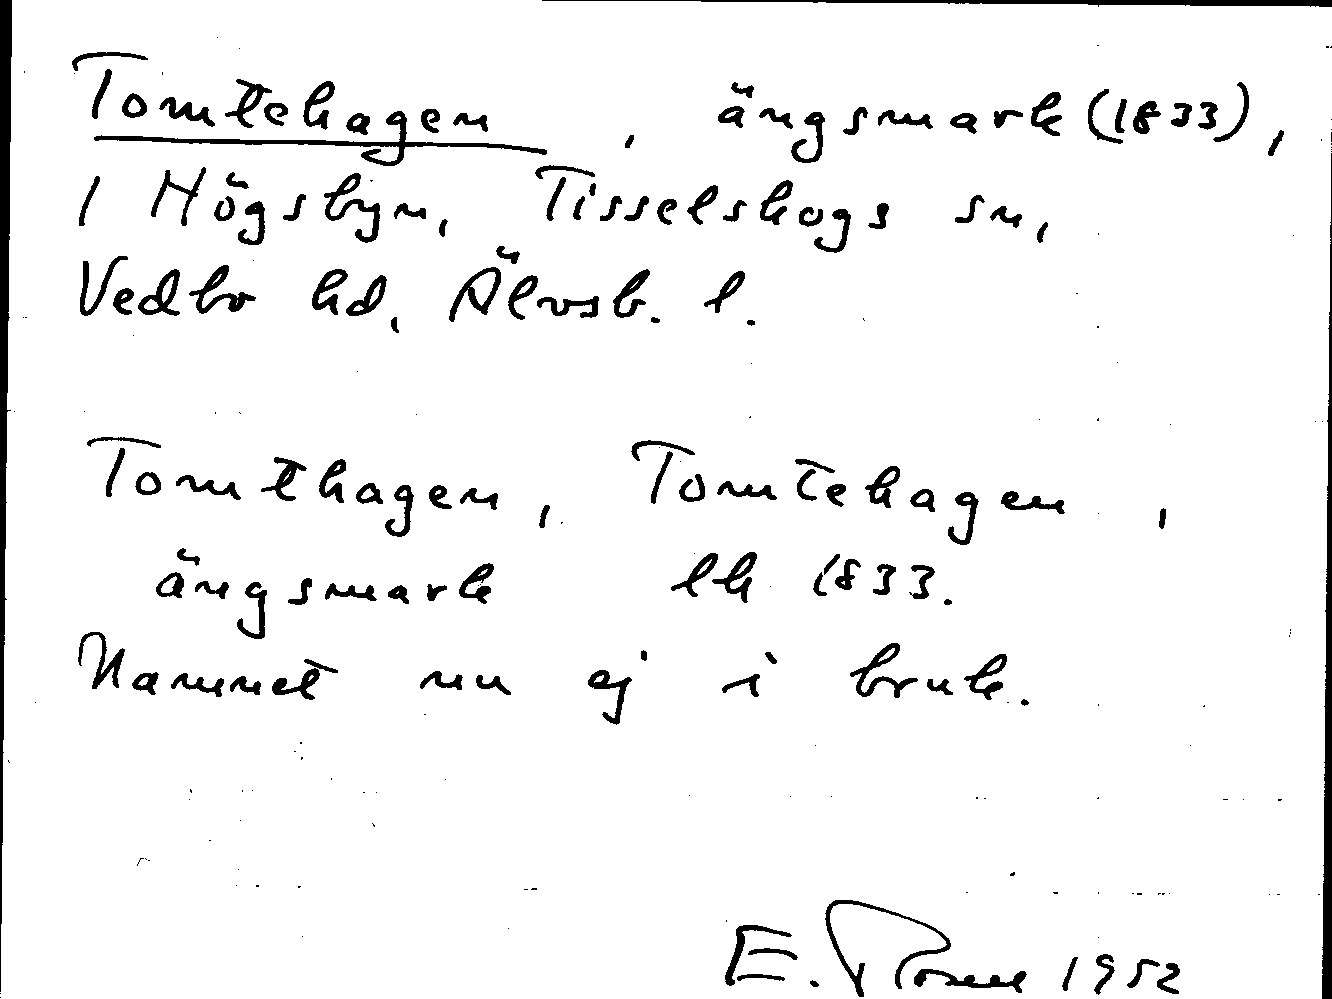 Tomtehagen, ängsmark (1833),
1 Högsbyn, Tisselskogs sn,
Vedbo hd, Älvsb. l.
Tomthagen, Tomtehagen,
ängsmark lh 1833.
Namnet nu ej i bruk.
E. 1952